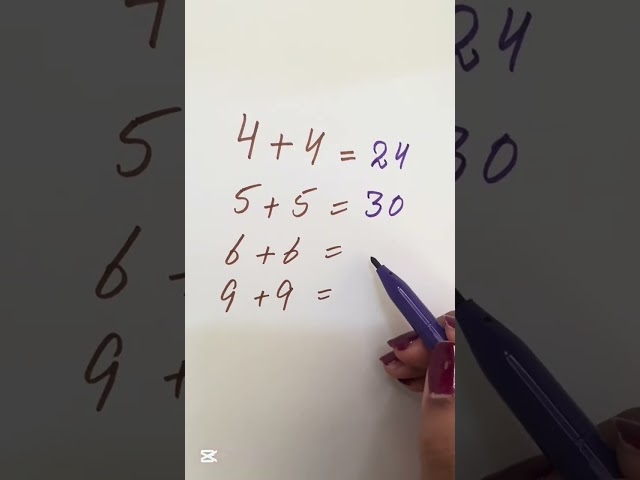 4+4=24
5+5=30
6+6=
9+9=